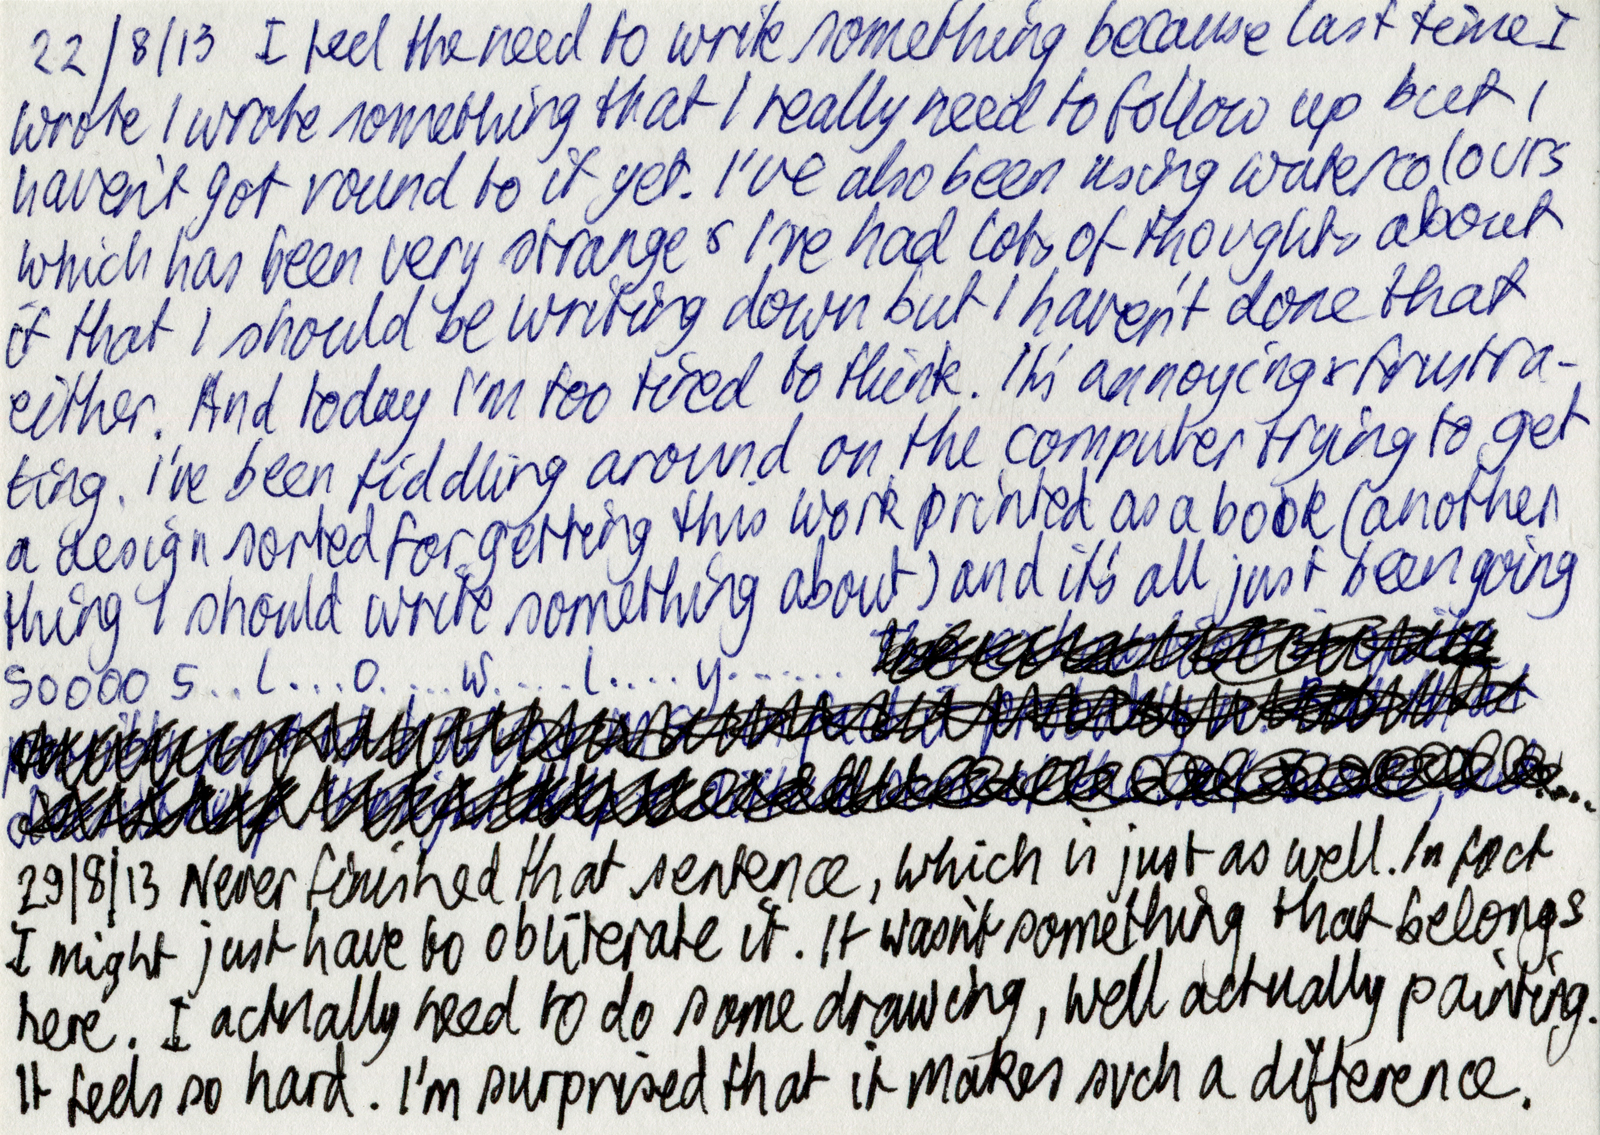 22/8/13 I feel the need to write something because last time I
wrote I wrote something that I really need to follow up but I
haven't got round to it yet. I've also been using watercolours
which has been very strange & I've had lots of thoughts about
it that I should be writing down but I haven't done that
either. And today I'm too tired to think. It's annoying & frustra-
ting. I've been fiddling around on the computer trying to get
a design sorted for getting this work printed as a book (another
thing I should write something about) and it's all just been going
soooo s..l...o....w....l....y.......
29/8/13 Never finished that sentence, which is just as well. In fact
I might just have to obliterate it. It wasn't something that belongs
here. I actually need to do some drawing, well actually painting.
It feels so hard. I'm surprised that it makes such a difference.